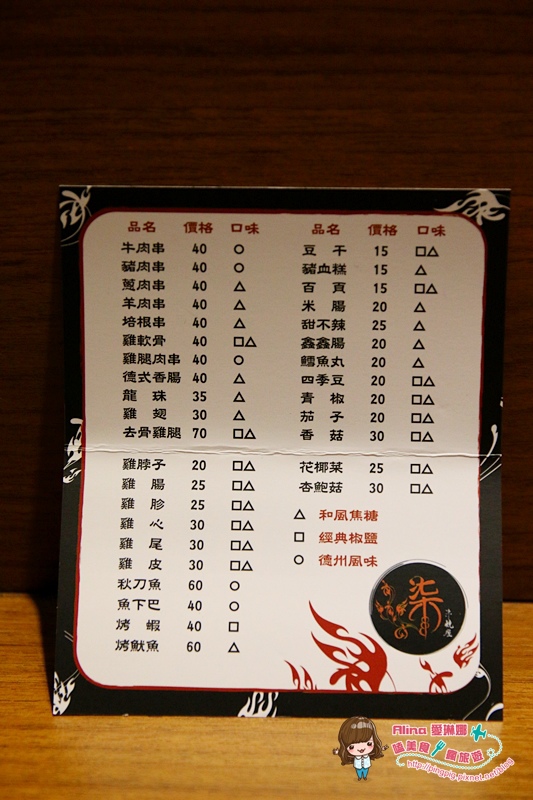 品名 價格 口味
牛肉串 40 ○
豬肉串 40 ○
蔥肉串 40 △
羊肉串 40 △
培根串 40 △
雞軟骨 40 □△
雞腿肉串 40 ○
德式香腸 40 △
龍珠 35 △
雞翅 30 △
去骨雞腿 70 □△
雞脖子 20 □△
雞腸 25 □△
雞胗 25 □△
雞心 30 □△
雞尾 30 □△
雞皮 30 □△
秋刀魚 60 ○
魚下巴 40 ○
烤蝦 40 □
烤魷魚 60 △
品名 價格 口味
豆干 15 □△
豬血糕 15 △
百頁 15 □△
米腸 20 △
甜不辣 25 △
鑫鑫腸 20 △
鱈魚丸 20 △
四季豆 20 □△
青椒 20 □△
茄子 20 □△
香菇 30 □△
花椰菜 25 □△
杏鮑菇 30 □△
△ 和風焦糖
□ 經典椒鹽
○ 德州風味
柒
串燒屋
Alina 愛琳娜
嗑美食 瘋旅遊
http://pingpig.pixnet.net/blog